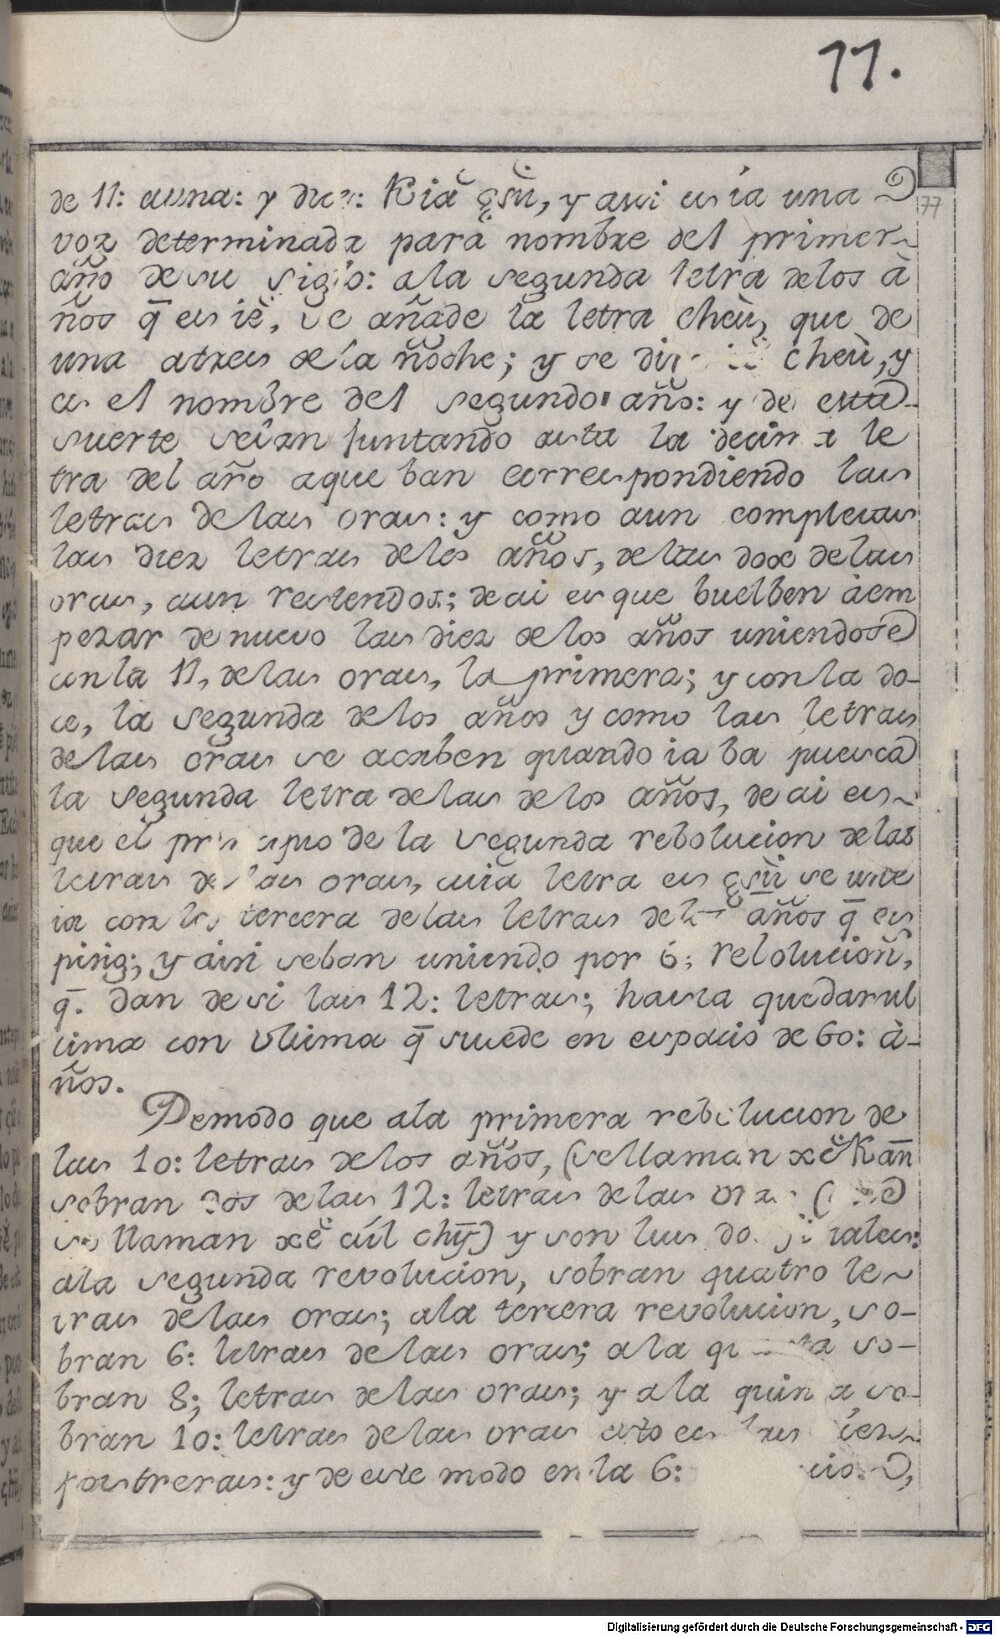 77.
77
de 11: auna: y dice: Kiă çsù, y assi es ia una
voz determinada para nombre del primer~
año de su siglo: ala segunda letra delos à
ños q̄ es iĕ, se añade la letra cheù, que de
una atras dela noche; y se cheù, y
es el nombre del segundo año: y de esta
suerte seian juntando asta la decima le
tra del año aque ban correspondiendo las
letras delas oras: y como aun completas
las diez letras delos años, delas doce delas
oras, aun restendos: de ai es que buelben àem
pezar de nuevo las diez delos años uniendose
conla 11, delas oras, la primera; y conla do-
ce, la segunda delos años y como las letras
delas oras se acaben quando ia ba puesta
la segunda letra delas delos años, de ai es~
que el principio de la segunda rebolucion delas
letras delas oras, cuiă letra es çsù se une
ia con la tercera delas letras delos años q̄ es
ping; y assi seban uniendo por 6: rebolucioñ,
q̄. dan de si las 12: letras; hasta quedarul
tima con ultima q̄ sucede en espacio de 60: à-
ños.
Demodo que ala primera rebolucion de
las 10: letras delos años, (sellaman xĕ Kān
sobran dos delas 12: letras delas oras (
se llaman xĕ úl chȳ) y son las dos
ala segunda revolucion, sobran quatro le~
tras delas oras; ala tercera revolucion, so-
bran 6: letras delas oras; ala quarta so-
bran 8; letras delas oras; y ala quinta, so-
bran 10: letras delas oras esto es las diez~
postreras: y de este modo en la 6:
Digitalisierung gefördert durch die Deutsche Forschungsgemeinschaft - DFG